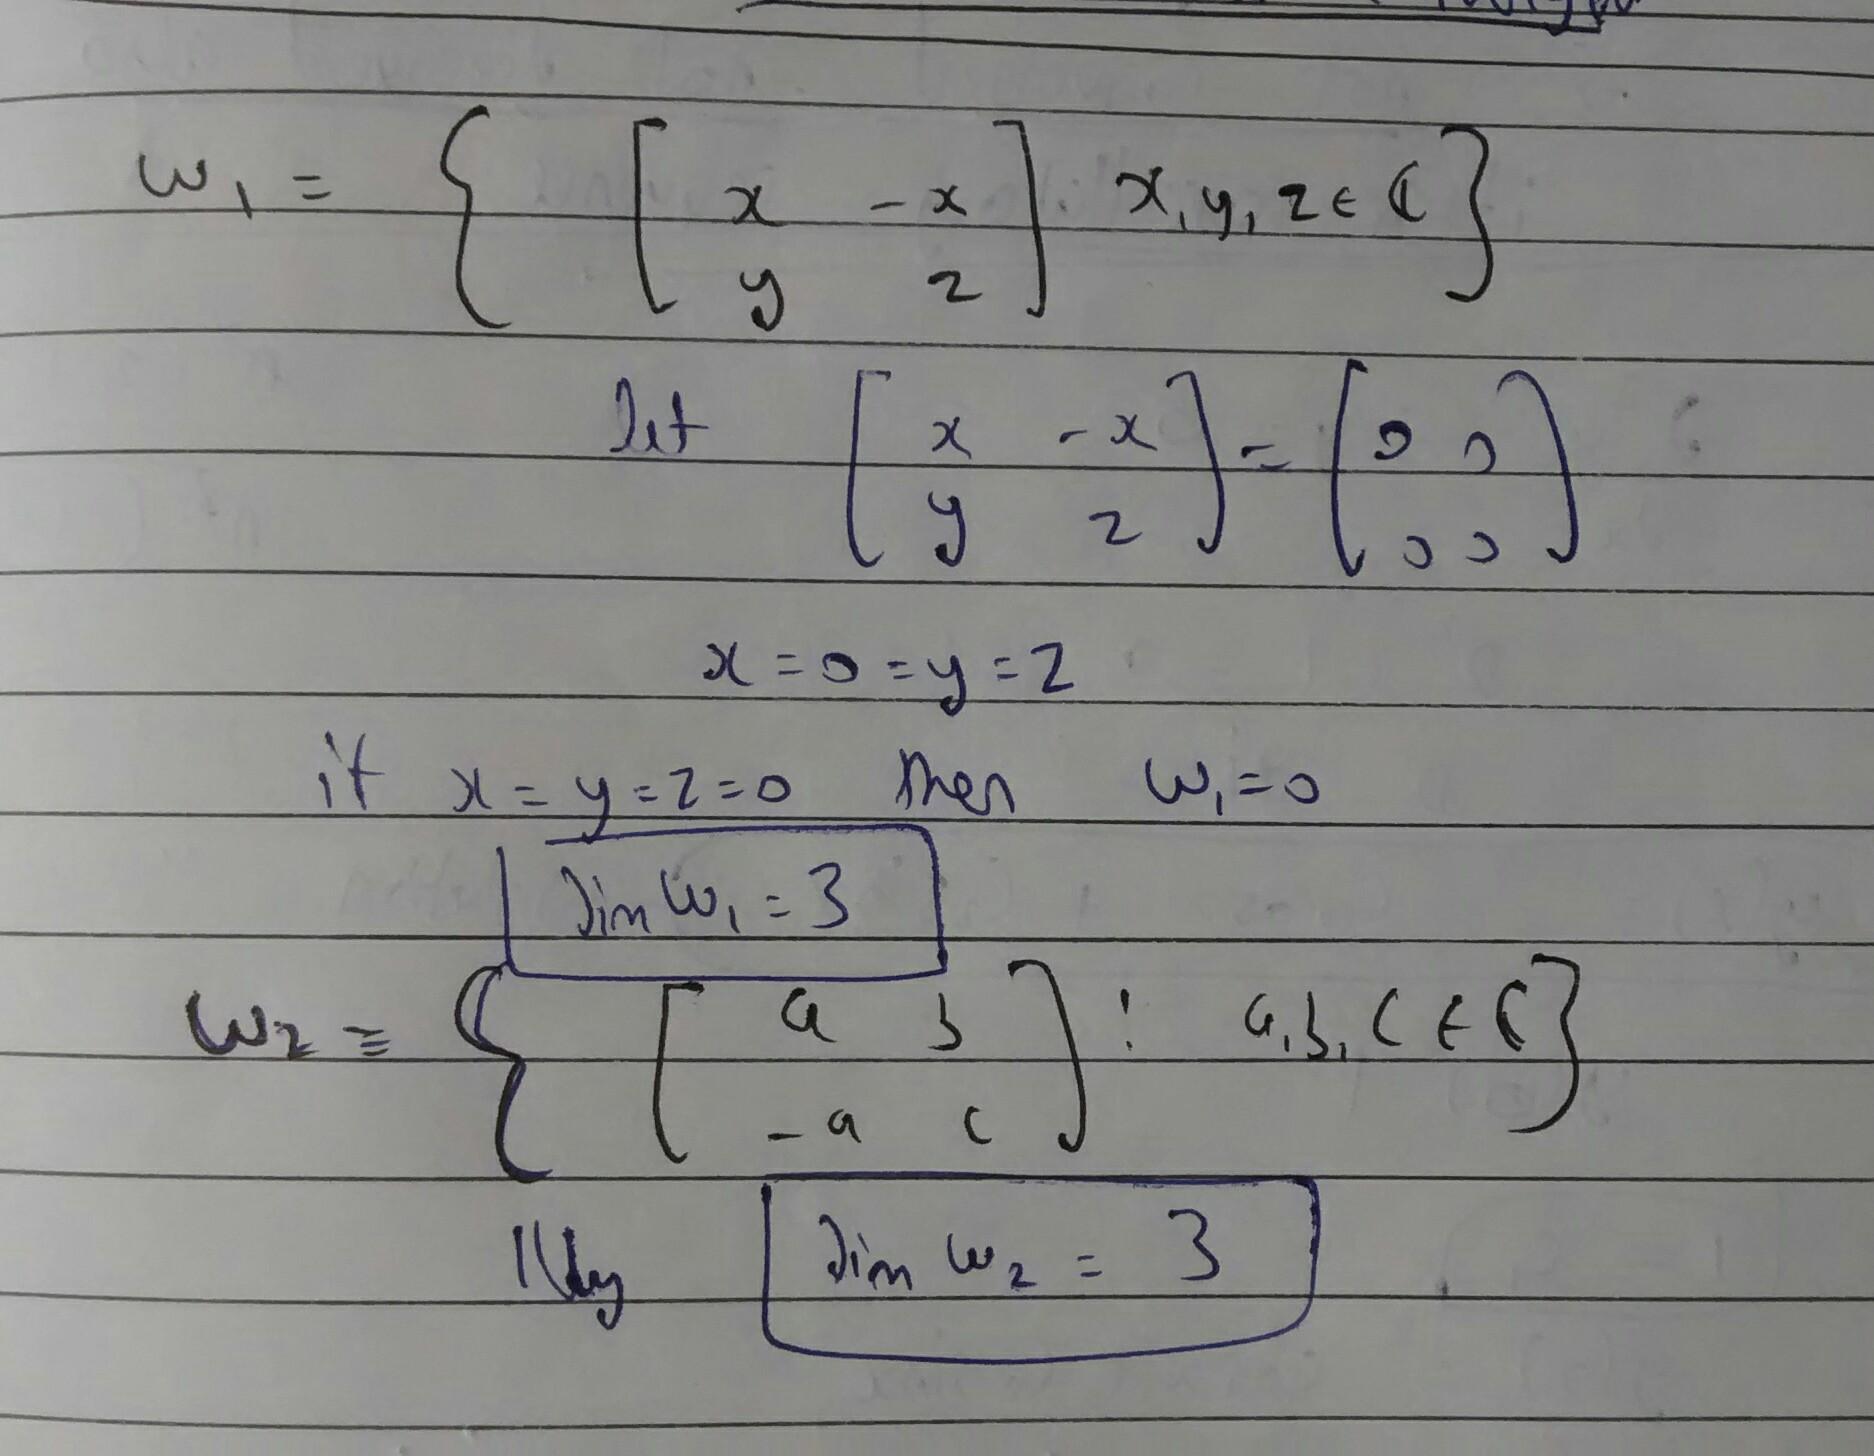 W₁ = { [ x -x ; y z ] x, y, z ∈ ℂ }
let [ x -x ; y z ] = [ 0 0 ; 0 0 ]
x = 0 = y = z
if x = y = z = 0 then W₁ = 0
dim W₁ = 3
W₂ = { [ a b ; -a c ] : a, b, c ∈ ℂ }
||ly dim W₂ = 3